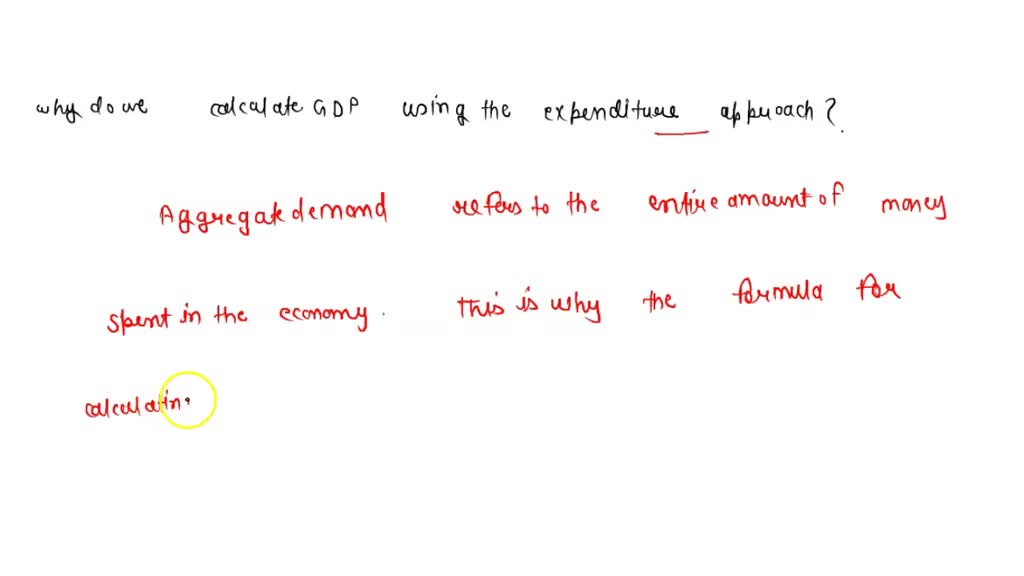 why do we calculate GDP using the expenditure approach?
Aggregate demand refers to the entire amount of money
spent in the economy. This is why the formula for
calculatin